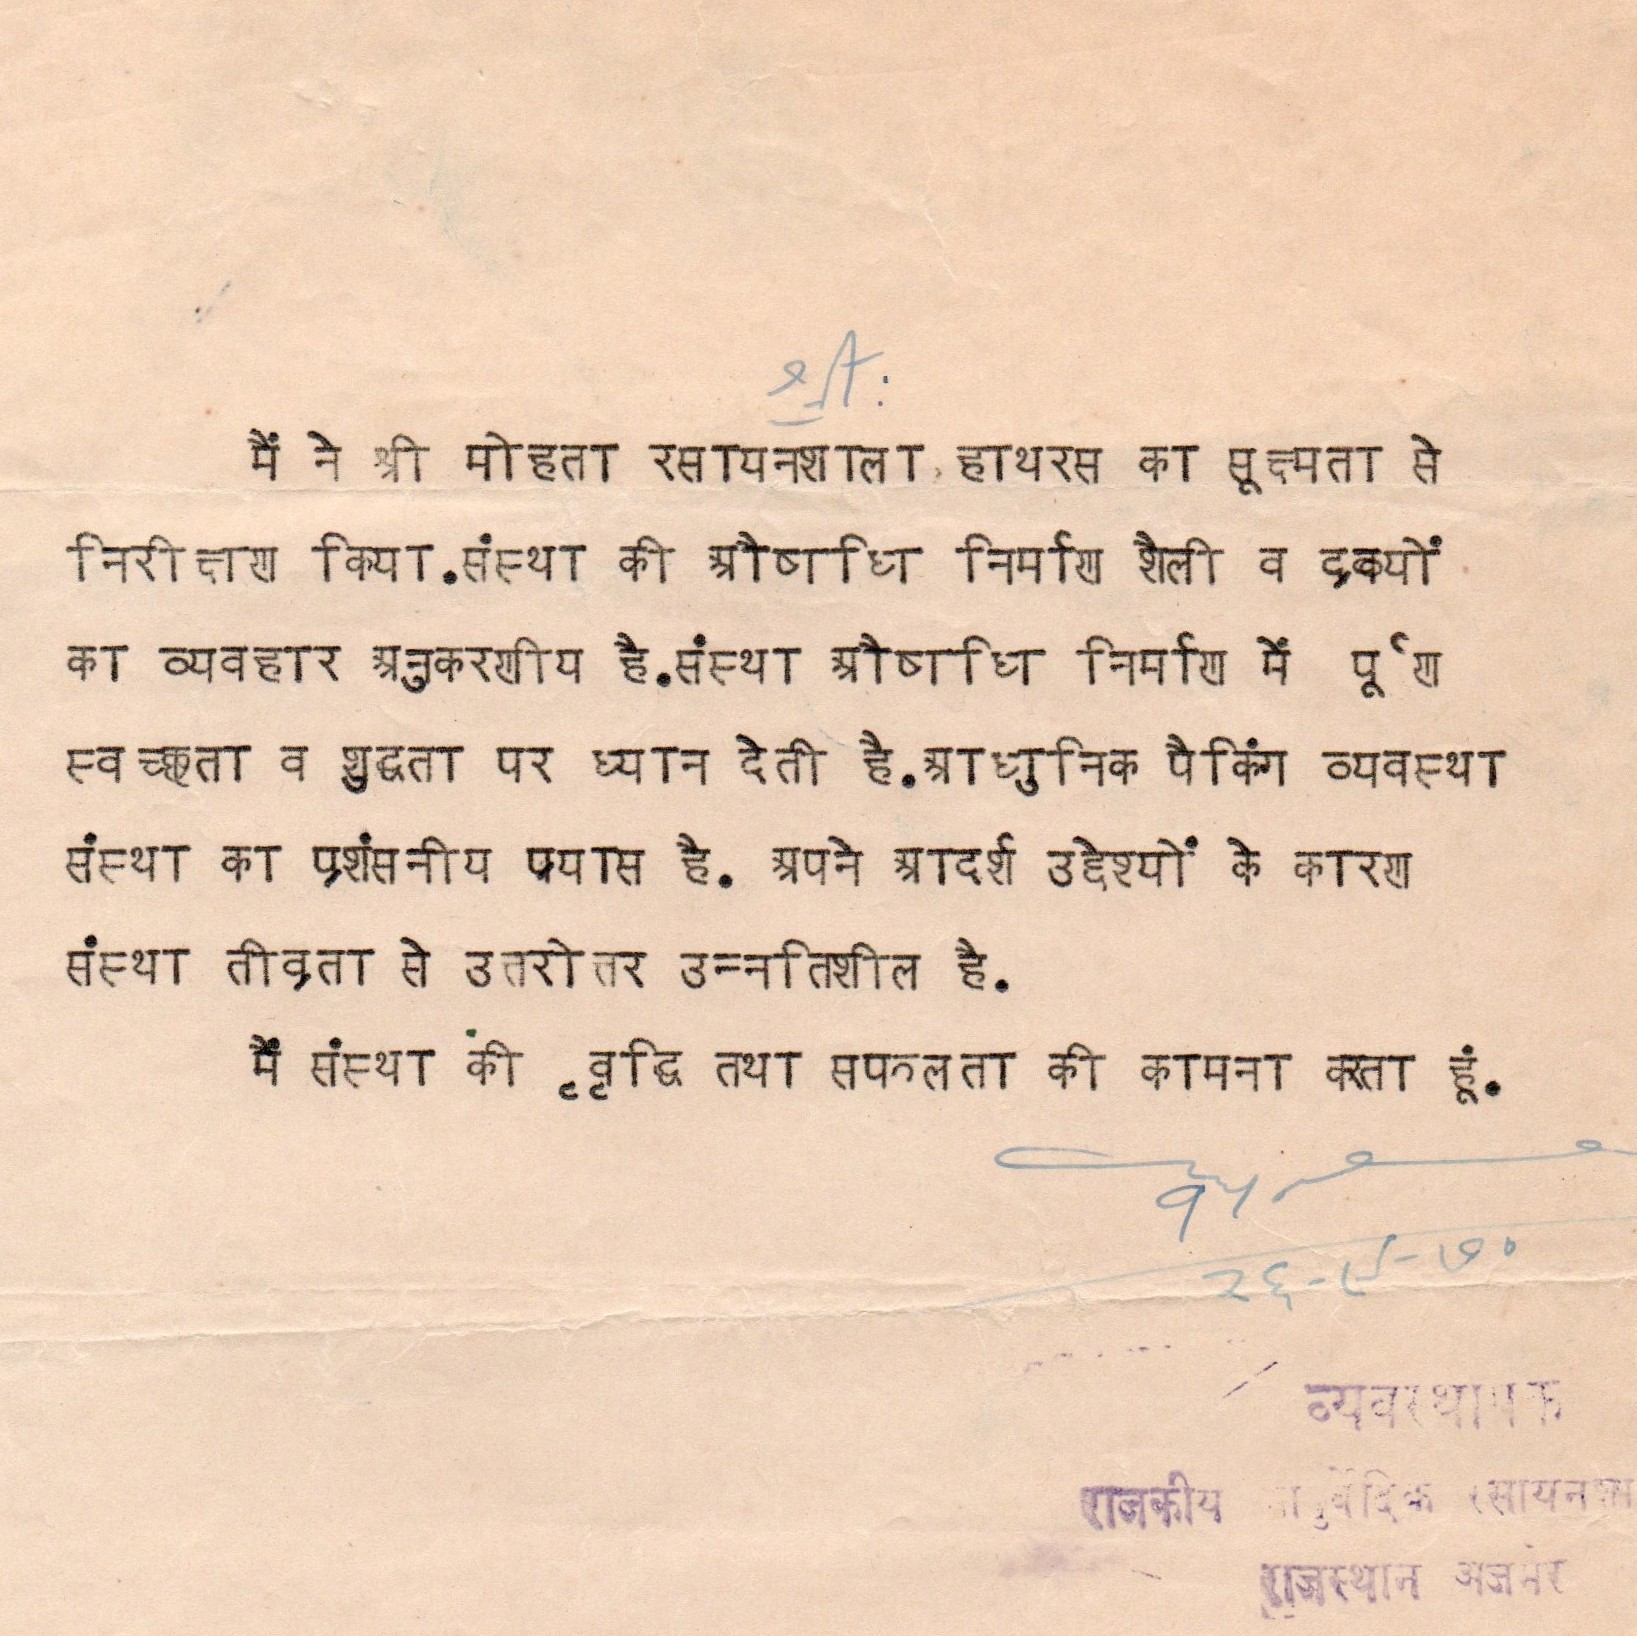 श्री:
मैं ने श्री मोहता रसायनशाला, हाथरस का सूक्ष्मता से
निरीक्षण किया.संस्था की औषधि निर्माण शैली व द्रव्यों
का व्यवहार अनुकरणीय है.संस्था औषधि निर्माण में पूर्ण
स्वच्छता व शुद्धता पर ध्यान देती है.आधुनिक पैकिंग व्यवस्था
संस्था का प्रशंसनीय प्रयास है. अपने आदर्श उद्देश्यों के कारण
संस्था तीव्रता से उत्तरोत्तर उन्नतिशील है.
मैं संस्था की वृद्धि तथा सफलता की कामना करता हूं.
२६-९-७०
व्यवस्थापक
राजकीय आयुर्वेदिक रसायनशा
राजस्थान अजमेर